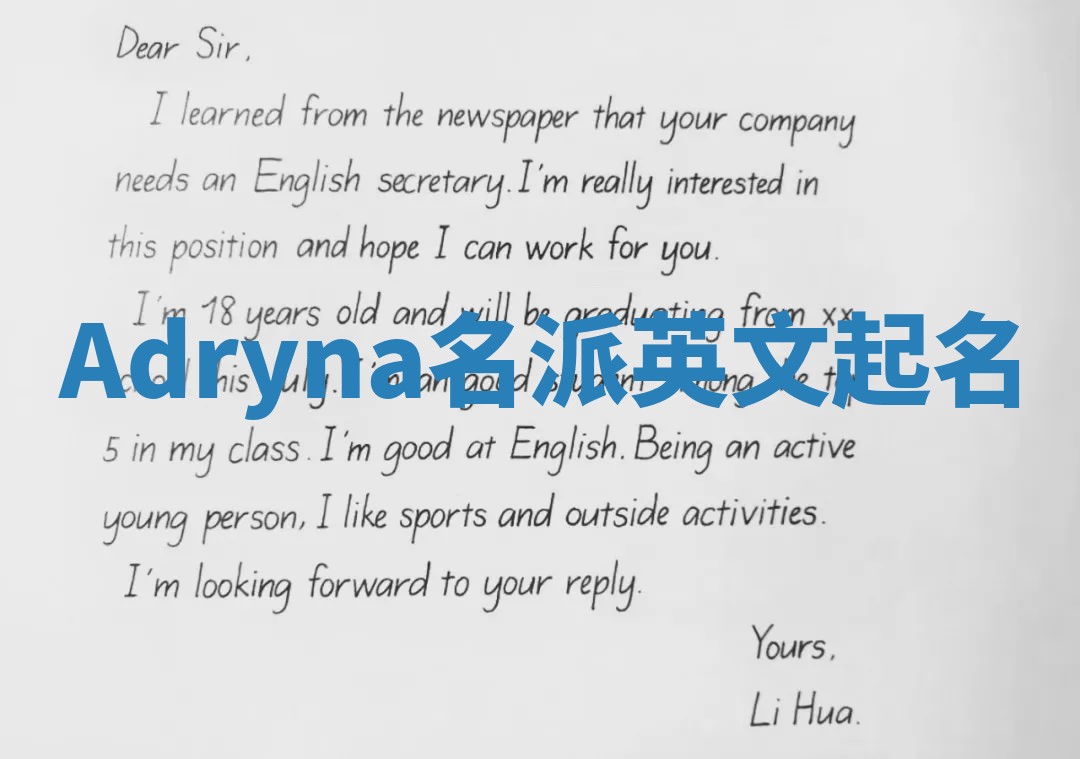 Dear Sir,
I learned from the newspaper that your company
needs an English secretary. I'm really interested in
this position and hope I can work for you.
I'm 18 years old and will be graduating from xx
Adryna名派英文起名
this July. I'm an good student among the top
5 in my class. I'm good at English. Being an active
young person, I like sports and outside activities.
I'm looking forward to your reply.
Yours,
Li Hua.